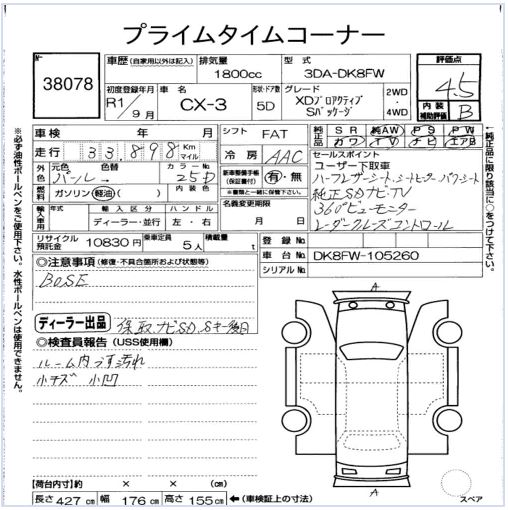 プライムタイムコーナー
№
38078
車歴 (自家用以外は記入)
排気量 1800cc
型式 3DA-DK8FW
評価点 4.5
内装補助評価 B
初度登録年月 R1/9月
車名 CX-3
形状・ドア数 5D
グレード XDプロアクティブSパッケージ
2WD・4WD
※必ず油性ボールペンをご使用下さい。水性ボールペンは使用できません。
車検 年 月
シフト FAT
純正品 SR 純AW PS PW
カワ TV ナビ エアB
↑純正品に限り該当に○をつけて下さい。
走行 33,898 Km マイル
冷房 AAC
セールスポイント
ユーザー下取車
ハーフレザーシート、シートヒーター、パワーシート
純正SDナビ・TV
360°ビューモニター
レーダークルーズコントロール
外色 元色 パール→ 色替
カラーNo. 25D
内装色
燃料 ガソリン・軽油・( )
新車整備手帳(保証書付) 有・無
※書類と一緒に保管して下さい。
名義変更期限 月 日
輸入車用 年式 輸入区分 ディーラー・並行 ハンドル 左・右
リサイクル預託金 10830円
乗車定員 5人
積載量 t
登録No.
車台No. DK8FW-105260
シリアルNo.
◎注意事項 (修復・不具合箇所および状態等)
BOSE
ディーラー出品 保取ナビSD、Sキー後日
◎検査員報告 (USS使用欄)
ルーム内うす汚れ
小キズ 小凹
A
A
【荷台内寸】約 × × (cm)
長さ 427cm 幅 176cm 高さ 155cm ←(車検証上の寸法)
スペア